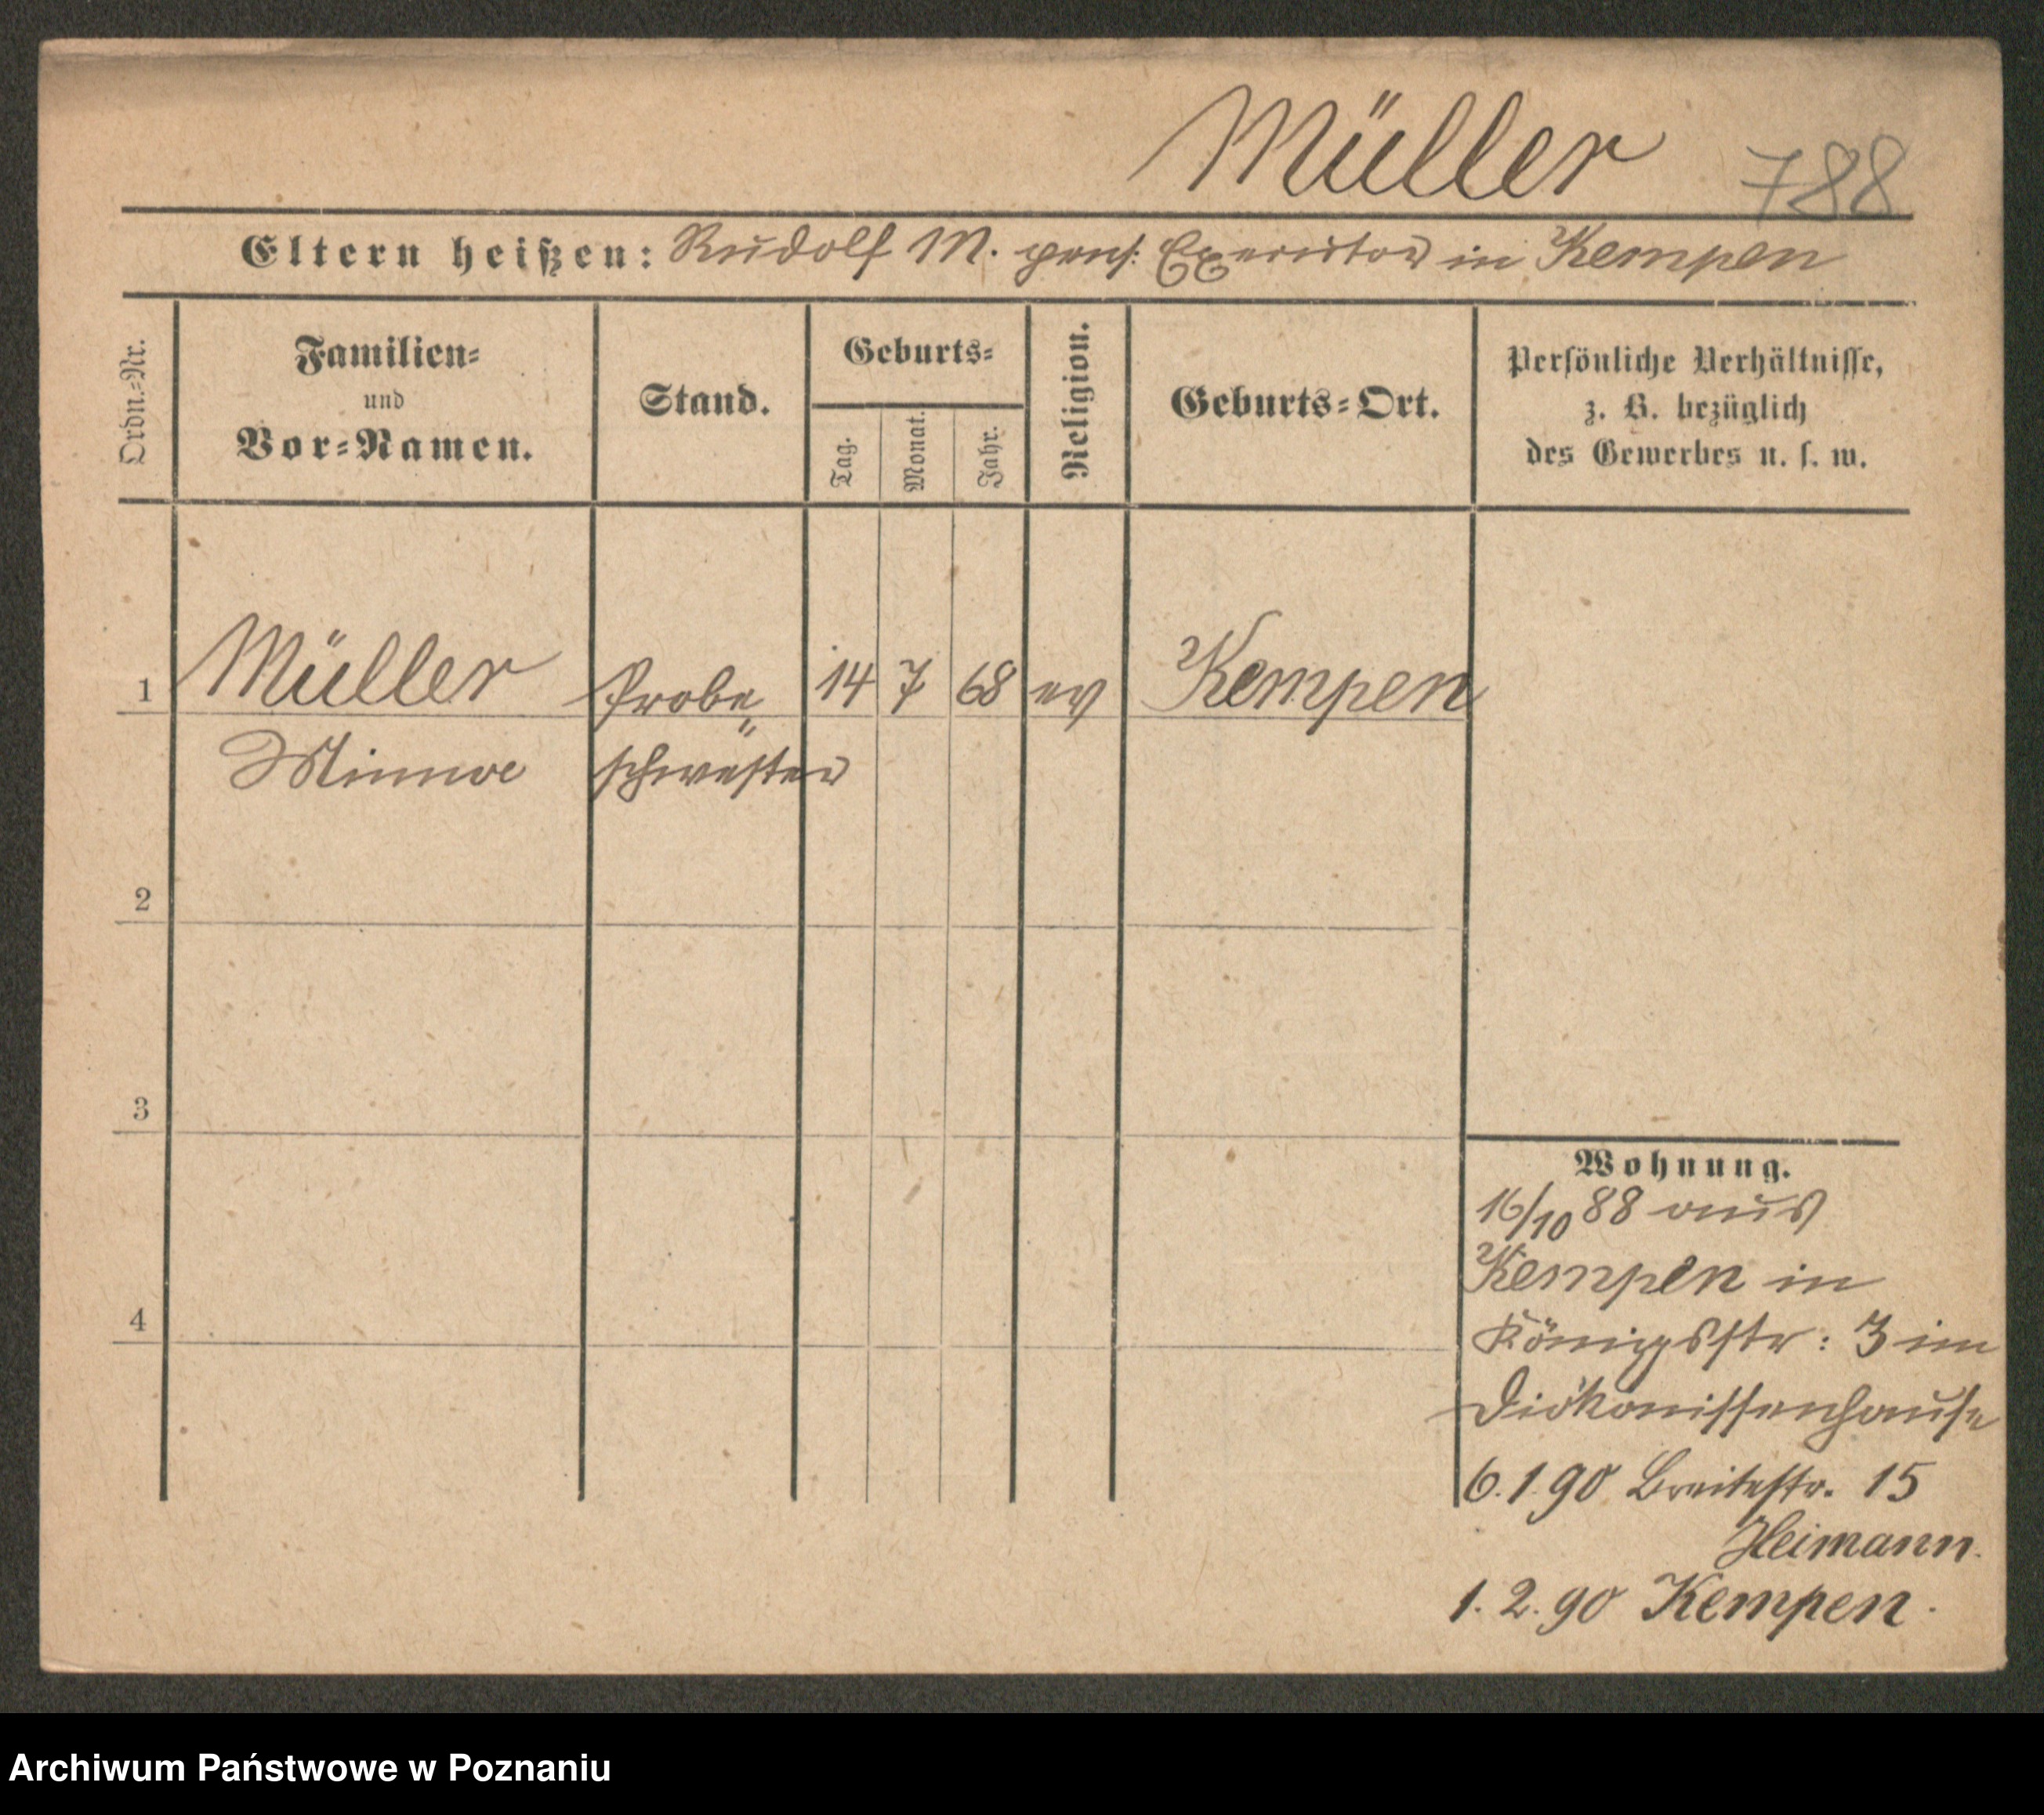 Müller 788
Eltern heißen: Rudolf M. pens: Executor in Kempen
Ordn.=Nr.
Familien=
und
Vor=Namen.
Stand.
Geburts=
Tag.
Monat.
Jahr.
Religion.
Geburts=Ort.
Persönliche Verhältnisse,
z. B. bezüglich
des Gewerbes u. s. w.
1 Müller Probe„ 14 7 68 ev Kempen
schwester
2
3
4
Wohnung.
16/10 88 aus
Kempen in
Königsstr: 3 im
Diakonissenhause
6.1.90 Breitestr. 15
Heimann.
1. 2. 90 Kempen.
Archiwum Państwowe w Poznaniu